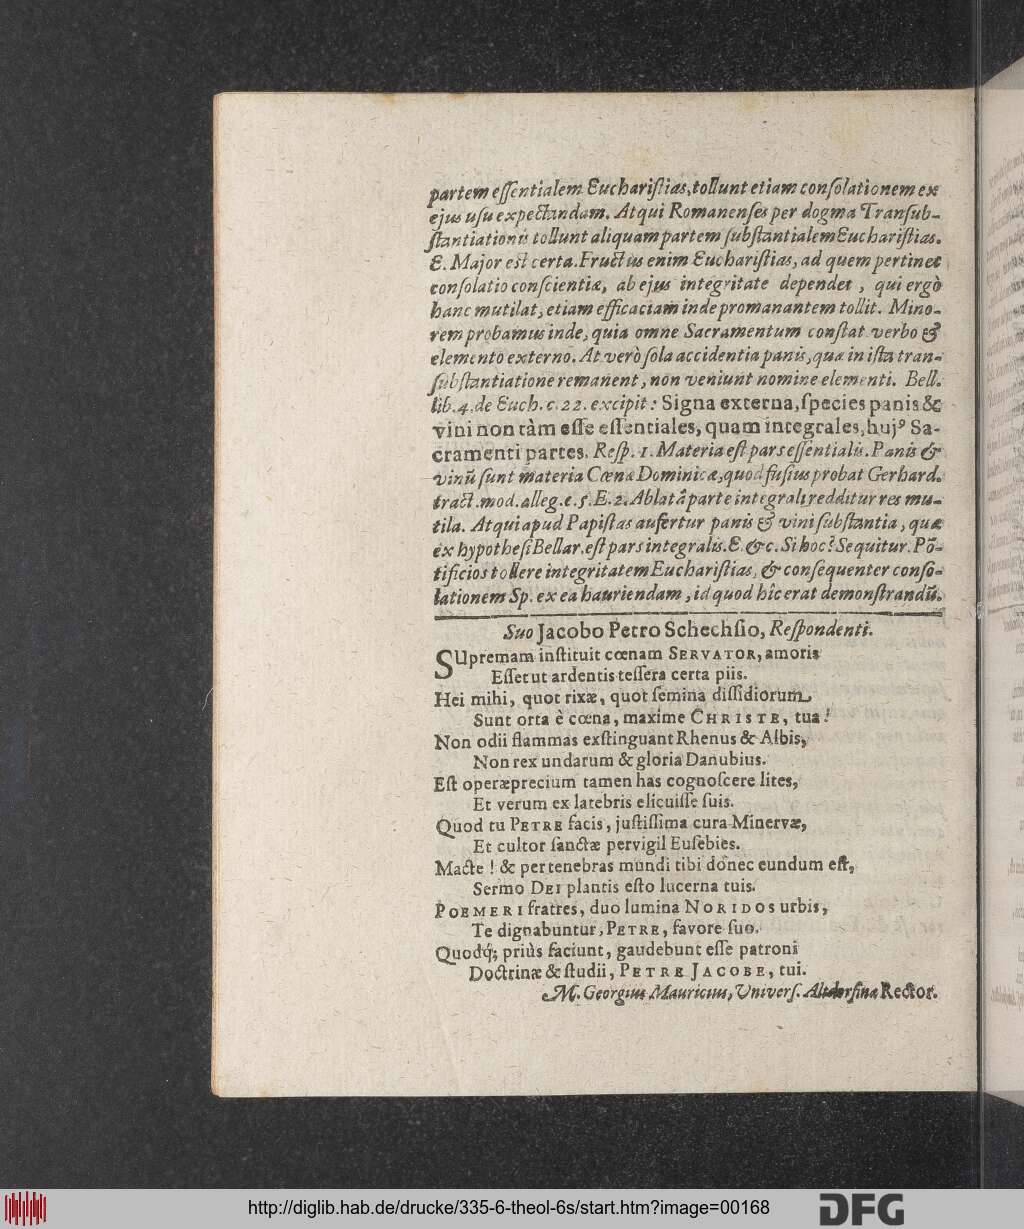 partem eſſentialem Euchariſtias, tollunt etiam conſolationem ex
ejus uſu expectandam. Atqui Romanenſes per dogma Tranſub-
ſtantiationis tollunt aliquam partem ſubſtantialem Euchariſtias.
E. Major est certa. Fructus enim Euchariſtias, ad quem pertinet
conſolatio conſcientiæ, ab ejus integritate dependet, qui ergò
hanc mutilat, etiam efficaciam inde promanantem tollit. Mino-
rem probamus inde, quia omne Sacramentum conſtat verbo &
elemento externo. At verò ſola accidentia panis, quæ in iſta tran-
ſubſtantiatione remanent, non veniunt nomine elementi. Bell.
lib. 4. de Euch. c. 22. excipit: Signa externa, ſpecies panis &
vini non tàm eſſe eſſentiales, quam integrales, hujꝰ Sa-
cramenti partes. Reſp. 1. Materia eſt pars eſſentialis. Panis &
vinū ſunt materia Cœnæ Dominicæ, quod fuſius probat Gerhard.
tract. mod. alleg. c. 5. E. 2. Ablatâ parte integrali redditur res mu-
tila. Atqui apud Papiſtas aufertur panis & vini ſubſtantia, quæ
ex hypotheſi Bellar. eſt pars integralis. E. &c. Si hoc? Sequitur. Pō-
tificios tollere integritatem Euchariſtias, & conſequenter conſo-
lationem Sp. ex ea hauriendam, id quod hîc erat demonſtrandū.
Suo Jacobo Petro Schechſio, Reſpondenti.
SUpremam inſtituit cœnam SERVATOR, amoris
Eſſet ut ardentis teſſera certa piis.
Hei mihi, quot rixæ, quot ſemina diſſidiorum
Sunt orta è cœna, maxime CHRISTE, tua!
Non odii flammas exſtinguant Rhenus & Albis,
Non rex undarum & gloria Danubius.
Eſt operæprecium tamen has cognoſcere lites,
Et verum ex latebris elicuiſſe ſuis.
Quod tu PETRE facis, juſtiſſima cura Minervæ,
Et cultor ſanctæ pervigil Euſebies.
Macte! & per tenebras mundi tibi donec eundum eſt,
Sermo DEI plantis eſto lucerna tuis.
POEMERI fratres, duo lumina NORIDOS urbis,
Te dignabuntur, PETRE, favore ſuo.
Quodq́; priùs faciunt, gaudebunt eſſe patroni
Doctrinæ & ſtudii, PETRE JACOBE, tui.
M. Georgius Mauricius, Univerſ. Altdorfinæ Rector.
http://diglib.hab.de/drucke/335-6-theol-6s/start.htm?image=00168
DFG